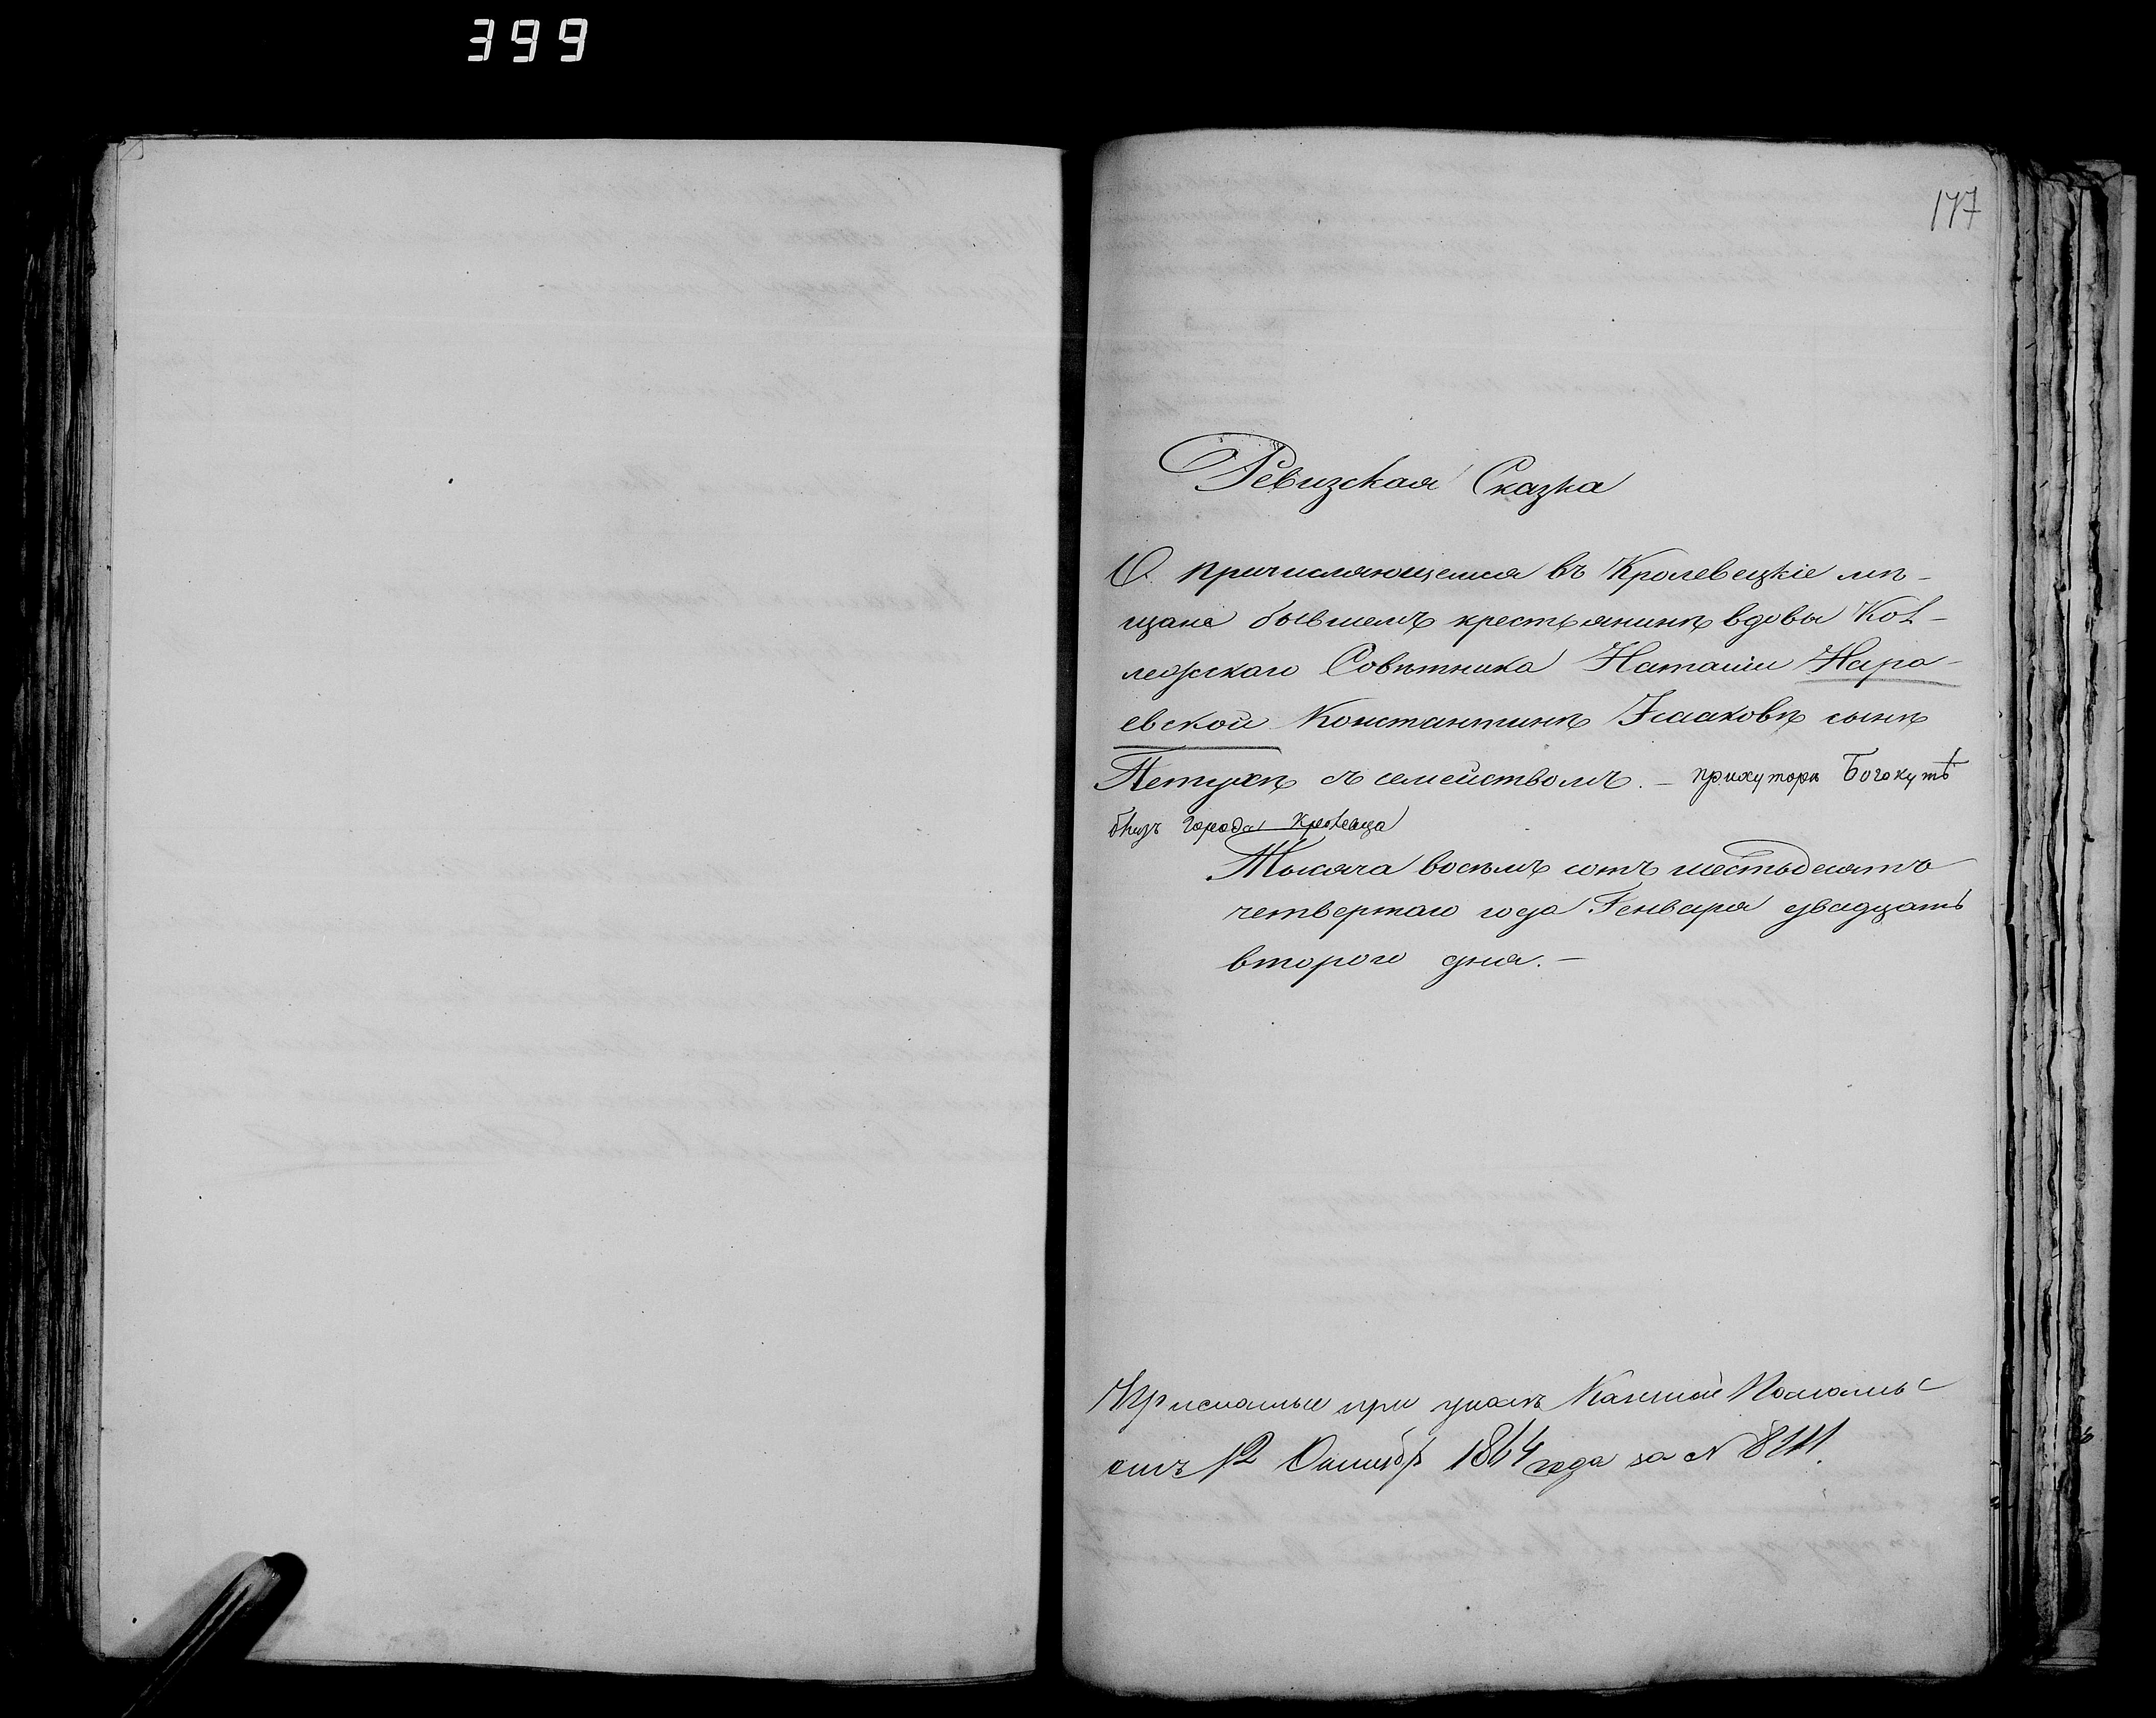 399
177
Ревизская Сказка
О причисляющемся въ Кролевецкіе мѣ-
щане бывшемъ крестьянинѣ вдовы Кол-
лежскаго Совѣтника Наташи Нара-
евской Константинѣ Исааковѣ сынѣ
Петухѣ съ семействомъ. — при хуторѣ Богокутѣ
близъ города Кролевца
Тысяча восемъ сотъ шестьдесятъ
четвертаго года Генваря двадцать
второго дня. —
при указѣ Казенной Палаты
отъ 12 Октября 1864 года за №